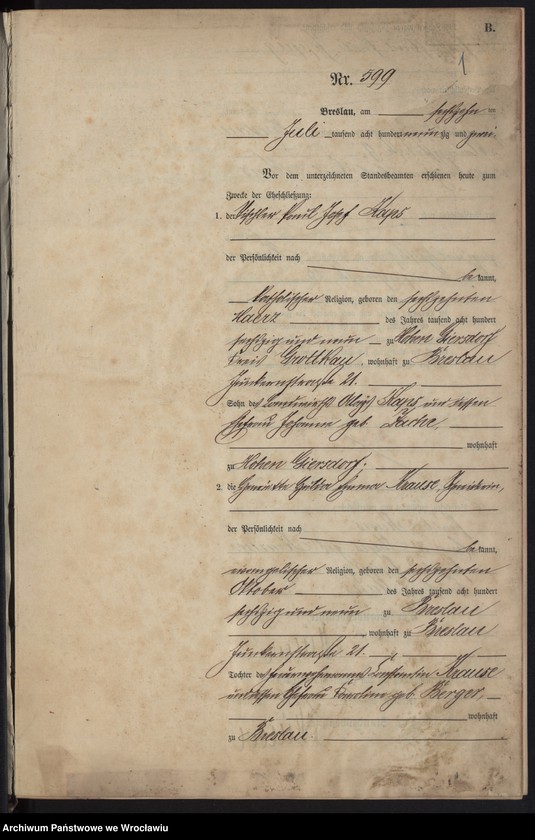 B.
1
Nr. 599
Breslau, am sechszehn ten
Juli tausend acht hundert neunzig und zwei
Vor dem unterzeichneten Standesbeamten erschienen heute zum
Zwecke der Eheschließung:
1. der Tischler Paul Josef Kaps
der Persönlichkeit nach
be kannt,
katholischer Religion, geboren den sechszehnten
Maerz des Jahres tausend acht hundert
sechszig und neun zu Hohen Giersdorf
Kreis Grottkau, wohnhaft zu Breslau
Junkernstrasse 21.
Sohn des Landwirths Aloys Kaps und dessen
Ehefrau Johanna geb.
wohnhaft
zu Hohen Giersdorf.
2. die Hulda Emma Krause,
der Persönlichkeit nach
be kannt,
evangelischer Religion, geboren den sechszehnten
Oktober des Jahres tausend acht hundert
sechszig und neun zu Breslau
, wohnhaft zu Breslau
Junkernstrasse 21.
Tochter des Krause
und dessen Ehefrau Karoline geb. Berger
wohnhaft
zu Breslau.
Archiwum Państwowe we Wrocławiu